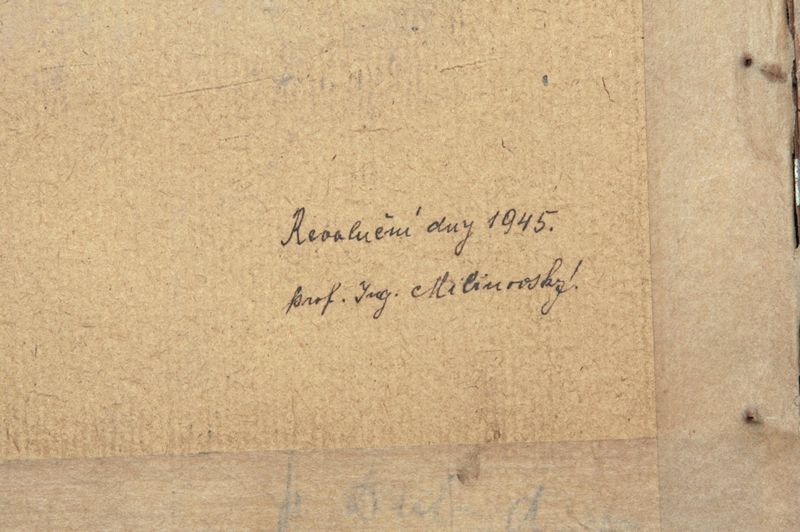 Revoluční dny 1945.
prof. Ing. Milinovský.